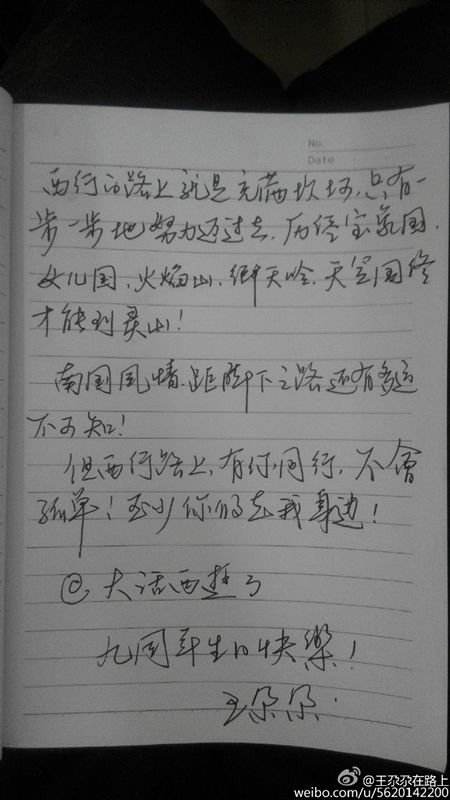 No.
Date
西行的路上就是充满坎坷,只有一
步一步地努力迈过去,历经宝象国,
女儿国,火焰山,狮天岭,天竺国终
才能到灵山!
南国风情,距脚下之路还有多远
不可知!
但西行路上,有你同行,不会
孤单!至少你们在我身边!
@大话西游3
九周年生日快樂!
王尕尕
@王尕尕在路上
weibo.com/u/5620142200